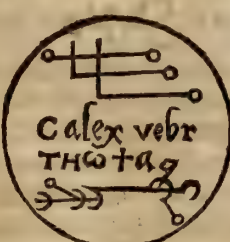 Calex vebr
THω+ag